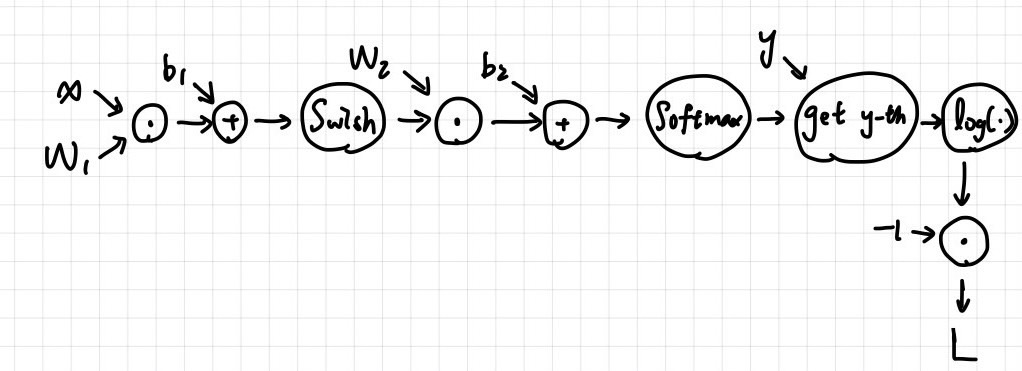 x
W₁
·
b₁
+
Swish
W₂
·
b₂
+
Softmax
y
get y-th
log(·)
-1
·
L